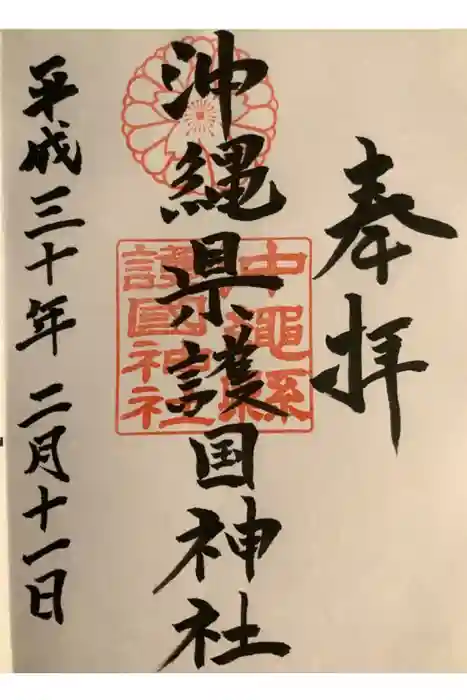 奉拝
沖縄県護国神社
沖繩縣
護國神社
平成三十年二月十一日